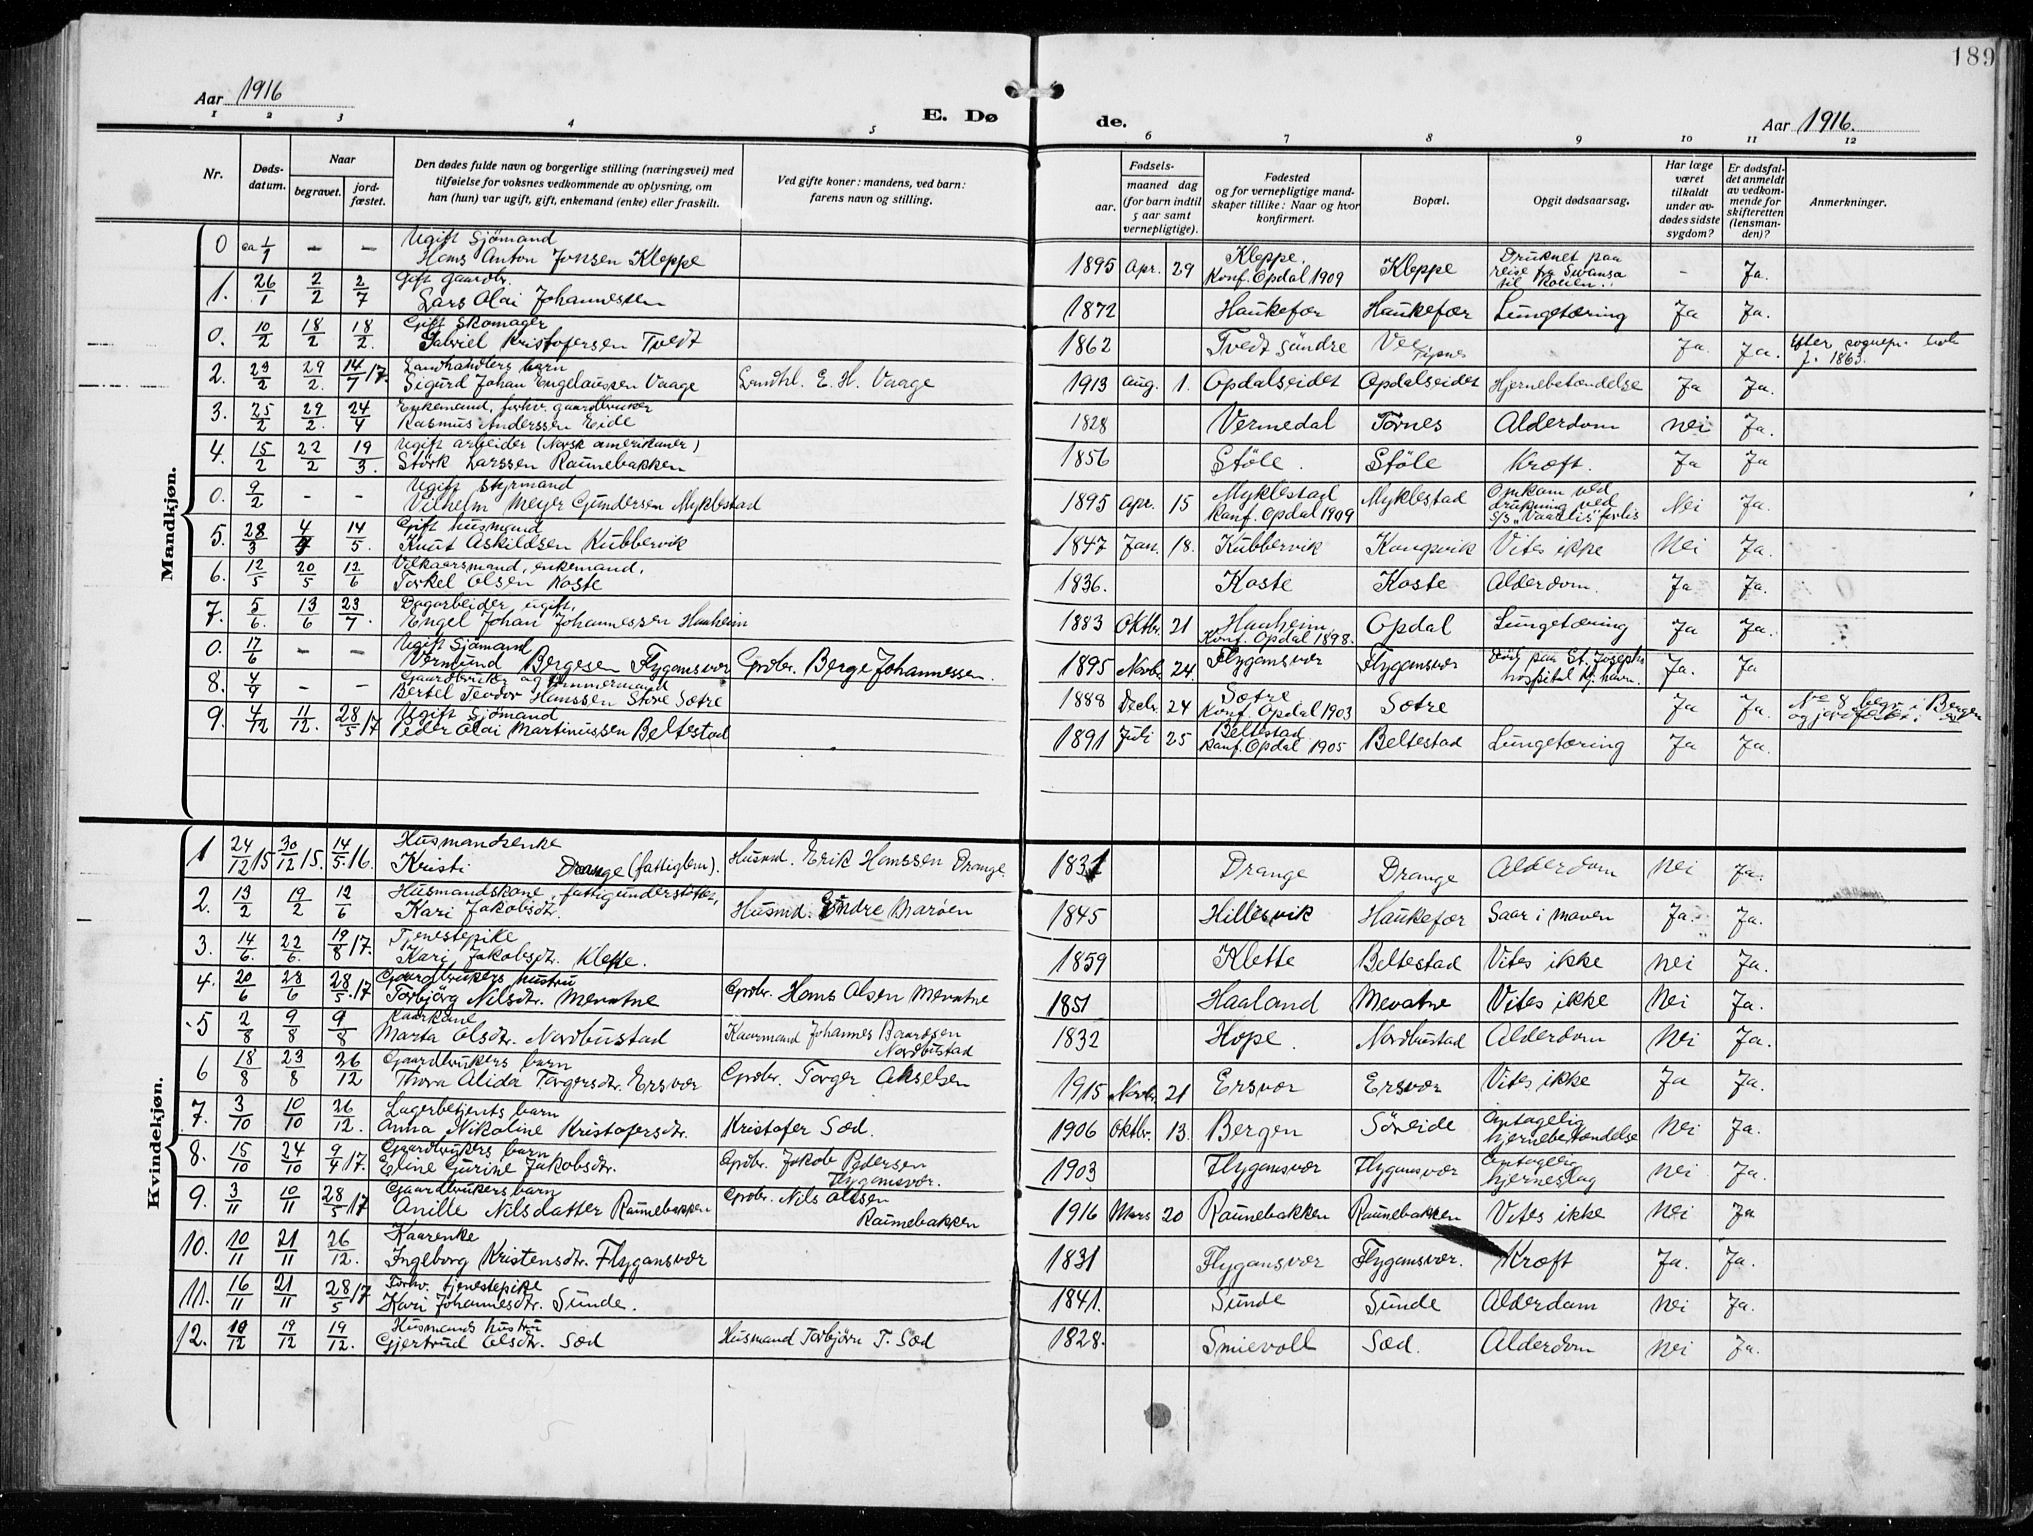 189
Aar 1916
E. Dø
de.
Aar 1916.
1 2 3 4 5 6 7 8 9 10 11 12
Nr.
Døds-
datum.
Naar
begravet.
jord-
fæstet.
Den dødes fulde navn og borgerlige stilling (næringsvei) med
tilføielse for voksnes vedkommende av oplysning, om
han (hun) var ugift, gift, enkemand (enke) eller fraskilt.
Ved gifte koner: mandens, ved barn:
farens navn og stilling.
Fødsels-
aar.
maaned dag
(for barn indtil
5 aar samt
vernepligtige).
Fødested
og for vernepligtige mand-
skaper tillike: Naar og hvor
konfirmert.
Bopæl.
Opgit dødsaarsag.
Har læge
været
tilkaldt
under av-
dødes sidste
sygdom?
Er dødsfal-
det anmeldt
av vedkom-
mende for
skifteretten
(lensman-
den)?
Anmerkninger.
Mandkjøn.
0 ca 1/1 – – Ugift Sjömand
Hans Anton Jonsen Kleppe 1895 Apr. 29 Kleppe.
Konf. Opdal 1909 Kleppe Druknet paa
reise fra Swansa
til Rouen. – Ja.
1. 26/1 2/2 2/7 Gift gaardbr.
Lars Olai Johannessen 1872 Haukefær Haukefær Lungetæring Ja Ja.
0. 10/2 18/2 18/2. Gift Skomager
Gabriel Kristofersen Tvedt 1862 Tvedt Söndre Ja. Ja. Efter sognepr.
f. 1863.
2. 23/2 29/2. 14/7 17. Landhandlers barn
Sigurd Johan Engelaussen Vaage Landhl. E. H. Vaage 1913 Aug. 1. Opdalseidet Opdalseidet Hjernebetændelse Ja Ja.
3. 25/2 29/2. 24/4 Enkemand, forhv. gaardbruker
Rasmus Anderssen Eide 1828 Vermedal Tornes Alderdom nei Ja.
4. 15/2 22/2 19/3. Ugift arbeider (Norsk amerikaner)
Störk Larssen Raunebakken 1856 Stöle. Stöle Kræft. Ja Ja
0. 9/2 – – Ugift Styrmand
Vilhelm Meyer Gundersen Myklestad 1895 Apr. 15 Myklestad
Konf. Opdal 1909 Myklestad Omkom ved
drukning ved
S/S "Vaarlis" forlis Nei Ja.
5. 28/3 4/4 14/5. Gift husmand
Knut Askildsen Kubbervik 1847 Jan. 18. Kubbervik Kongsvik Vites ikke Nei Ja.
6. 12/5 20/5 12/6 Vilkaarsmand, enkemand.
Torkel Olsen Koste 1836. Koste Koste Alderdom. Ja. Ja.
7. 5/6. 13/6 23/7. Dagarbeider, ugift,
Engel Johan Johannessen Hauheim 1883 Oktbr. 21 Hauheim.
Konf. Opdal 1898. Opdal Lungetæring Ja Ja.
0. 17/6 – – Ugift Sjömand
Vermund Bergesen Flygansvær Gaardbr. Berge Johannessen. 1895 Novbr. 24. Flygansvær Flygansvær Död paa St. Josephs
hospital Kj.havn. Ja. Ja
8. 4/9 – – Gaardbruker og tömmermand
Bertel Teodor Hanssen Store Sætre 1888 Decbr. 24 Sætre
Konf. Opdal 1903 Sætre Ja Ja. No 8 begr. i Bergen
og jordfæstet i
9. 4/12 11/12. 28/5 17 Ugift Sjömand
Peder Olai Martinussen Beltestad 1891 Juli 25 Beltestad
Konf. Opdal 1905 Beltestad Lungetæring Ja Ja.
Kvindekjøn.
1 24/12 15 30/12 15. 14/5 16. Husmandsenke
Kristi Drange (fattiglem). Husmd. Erik Hanssen Drange. 1831 Drange Drange Alderdom Nei Ja.
2. 13/2 19/2 12/6 Husmandskone, fattigunderstöttet,
Kari Jakobsdtr. Husmd. Endre Maröen 1845 Hillesvik Haukefær Saar i maven Ja. Ja.
3. 14/6. 22/6. 19/8 17. Tjenestepike
Kari Jakobsdtr. Klette. 1859 Klette Beltestad Vites ikke Nei Ja.
4. 20/6 28/6 28/5. 17 Gaardbrukers hustru
Torbjörg Nilsdtr. Mevatne Grdbr. Hans Olsen Mevatne 1851 Haaland Mevatne Vites ikke Nei Ja.
5 2/8 9/8 9/8 Kaarkone
Marta Olsdtr. Nordbustad Kaarmand Johannes Baardsen
Nordbustad 1832 Hope. Nordbustad Alderdom Nei Ja.
6 18/8 23/8 26/12 Gaardbrukers barn
Thora Alida Torgersdtr. Ersvær Grdbr. Torger Akselsen 1915 Novbr. 21 Ersvær Ersvær Vites ikke Ja Ja.
7. 3/10 10/10 26/12. Lagerbetjents barn
Anna Nikoline Kristofersdtr. Kristofer Sæd. 1906 Oktbr. 13. Bergen Söreide Optagelig
hjernebetændelse Nei Ja.
8. 15/10 24/10 9/4 17. Gaardbrukers barn
Eline Gurine Jakobsdtr. Grdbr. Jakob Pedersen
Flygansvær. 1903 Flygansvær Flygansvær Optagelig
hjerneslag Nei Ja.
9. 3/11 10/11 28/5 17 Gaardbrukers barn
Anille Nilsdatter Raunebakken Grdbr. Nils Olssen
Raunebakken 1916 Mars 20 Raunebakken Raunebakken Vites ikke Nei Ja
10. 10/11 21/11 26/12. Kaarenke
Ingeborg Kristensdtr. Flygansvær 1831 Flygansvær Flygansvær. Kræft Ja. Ja.
11. 16/11 21/11 28/5 17 Forhv. tjenestepike
Kari Johannesdtr. Sunde. 1841. Sunde Sunde Alderdom Nei Ja.
12. 10/12 19/12 19/12. Husmands hustru
Gjertrud Olsdtr. Sæd Husmand Torbjörn T. Sæd 1828. Smievoll Sæd. Alderdom Nei Ja.